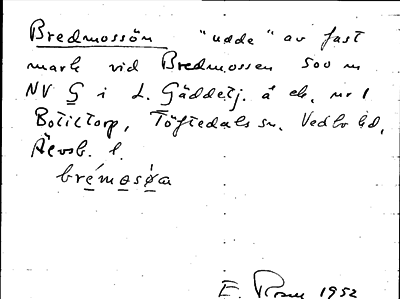 Bredmossön "udde" av fast
mark vid Bredmossen 500 m
NV G i L. Gäddetj. å ek. nr 1
Botictorp, Töftedals sn. Vedbo hd,
Älvsb. l.
bre´mosø`a
E. 1952